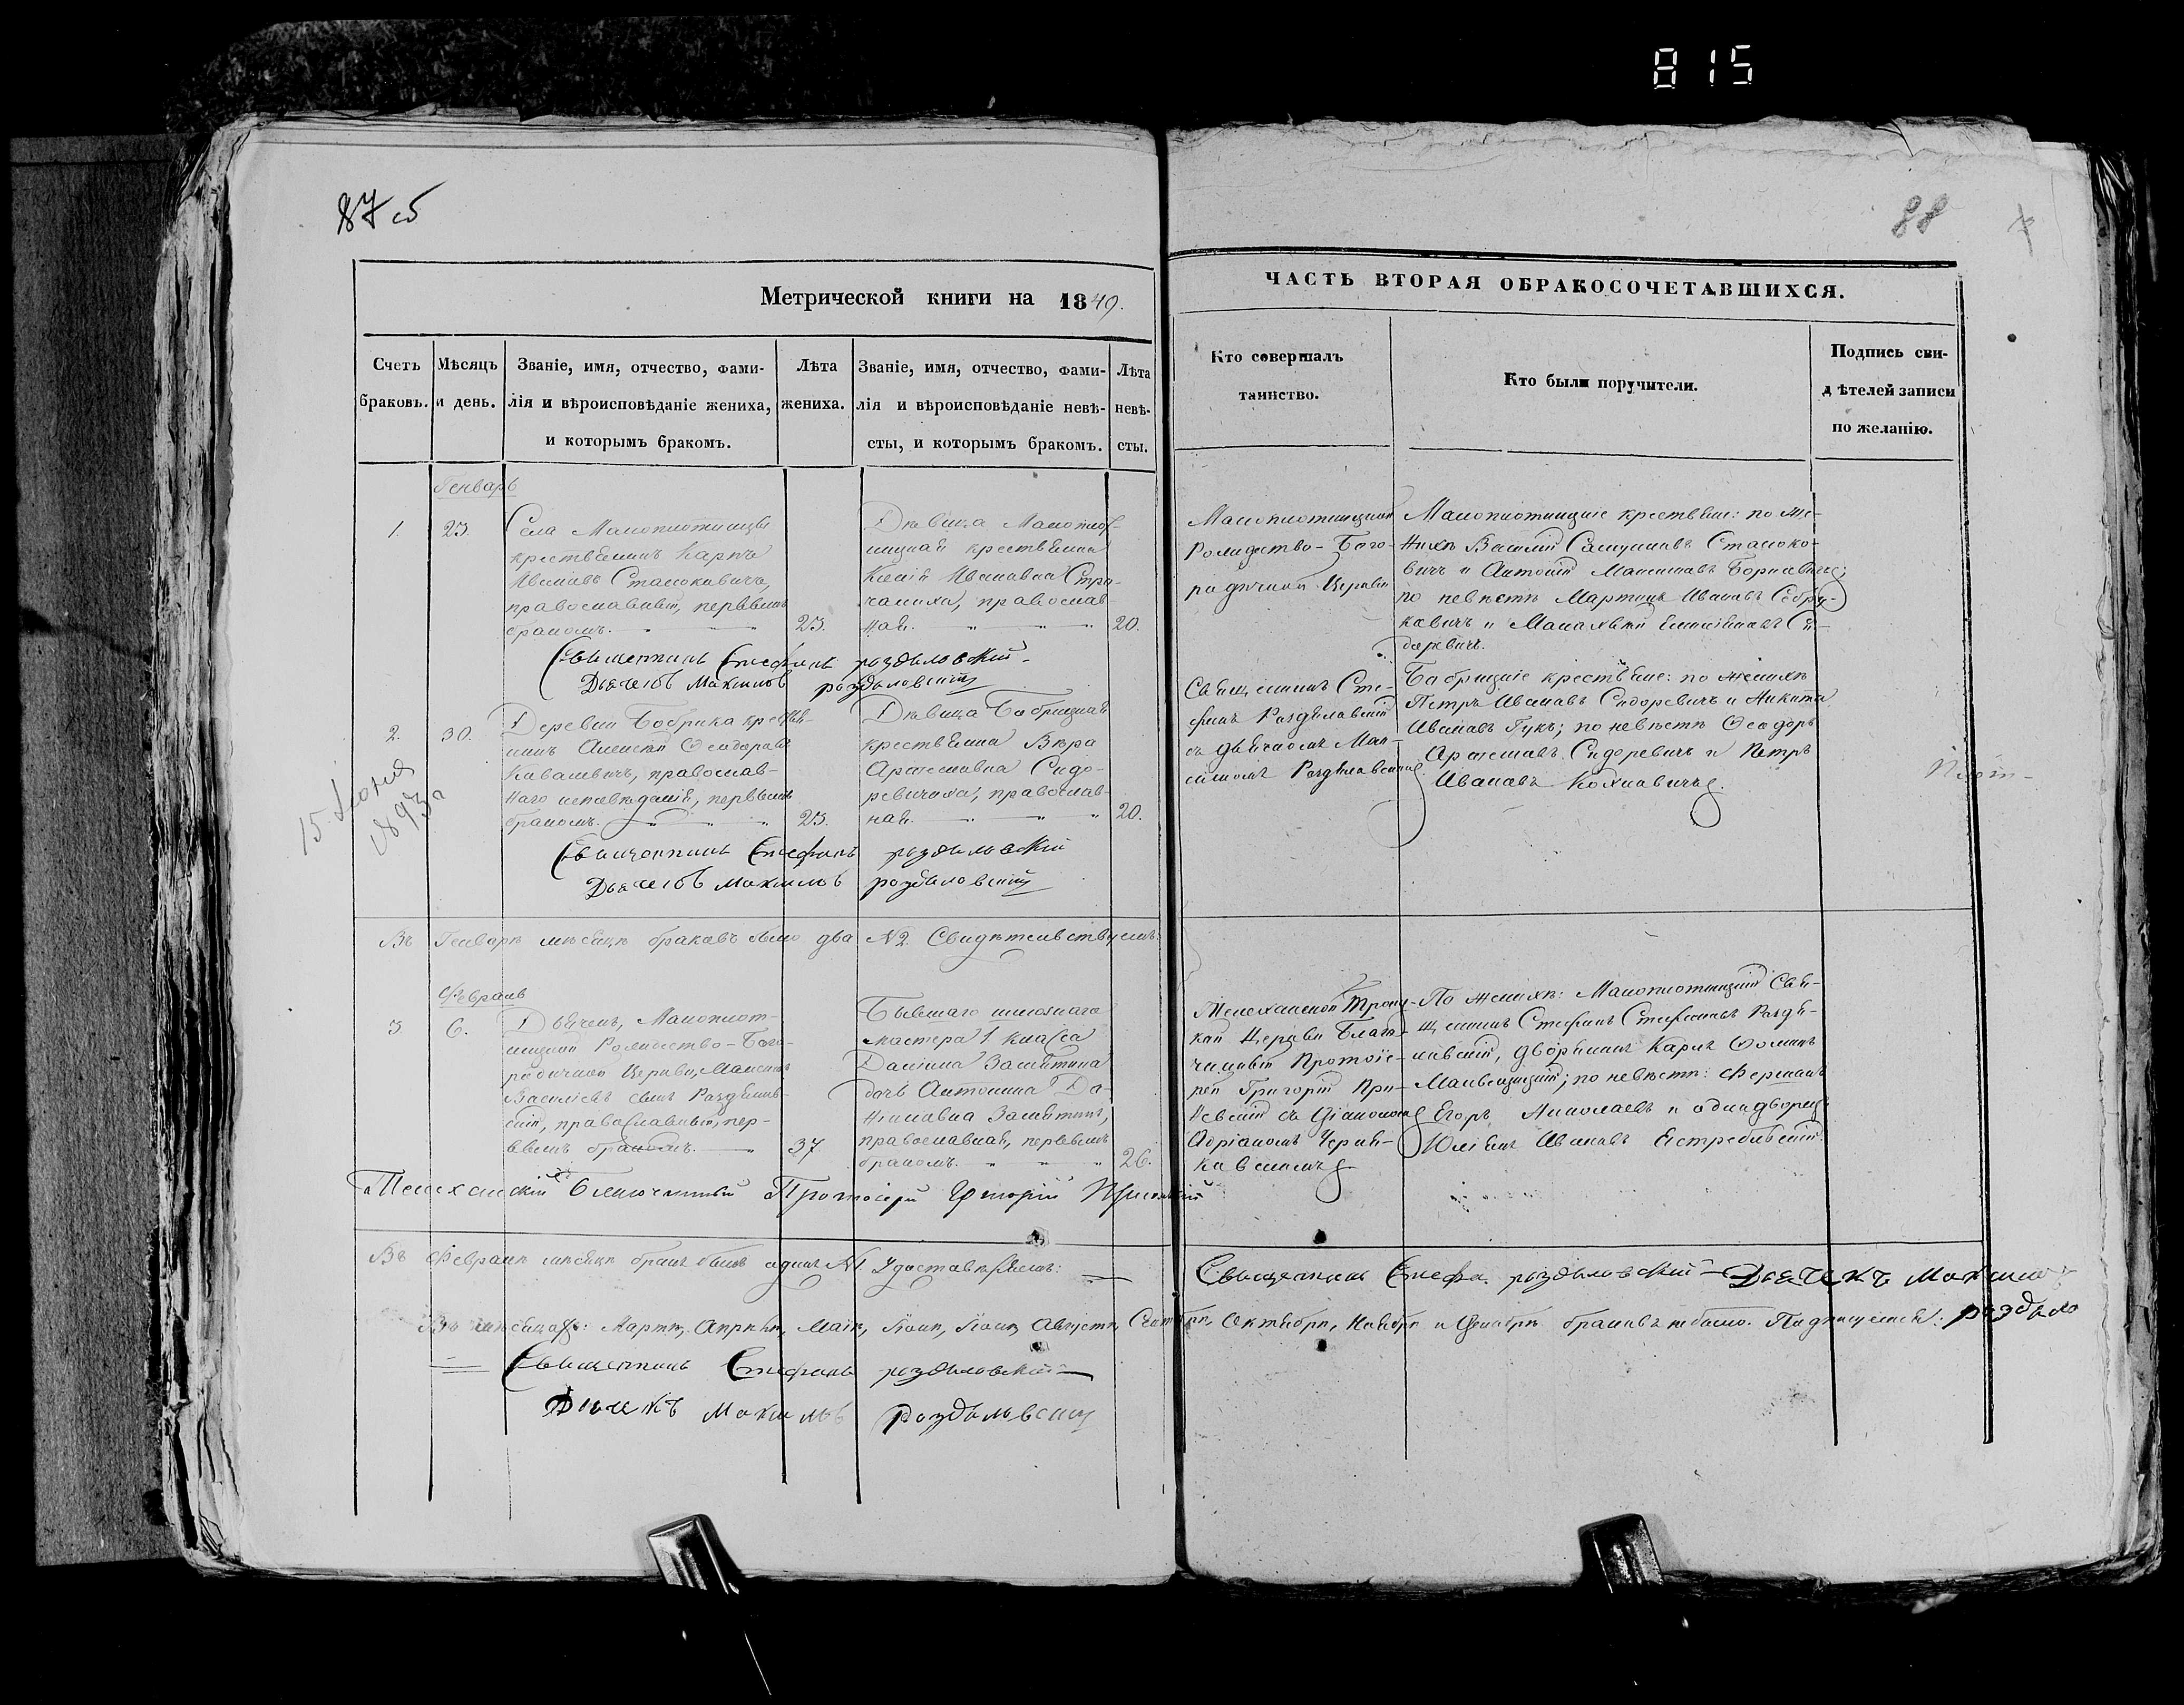 815
87 об
88
Метрической книги на 1849.
ЧАСТЬ ВТОРАЯ ОБРАКОСОЧЕТАВШИХСЯ.
Счетъ браковъ.
Мѣсяцъ и день.
Званіе, имя, отчество, фами-
лія и вѣроисповѣданіе жениха,
и которымъ бракомъ.
Лѣта
жениха.
Званіе, имя, отчество, фами-
лія и вѣроисповѣданіе невѣ-
сты, и которымъ бракомъ.
Лѣта
невѣ-
сты.
Кто совершалъ
таинство.
Кто были поручители.
Подпись сви-
дѣтелей записи
по желанію.
Генварь
1.
23.
Села Малоплотницы
крестьянинъ Карпъ
Ивановъ Станокевичъ,
православный, первымъ
бракомъ.
23.
Дѣвица Малоплот-
ницкая крестьянка
Ксенія Иванавна
православ-
ная.
20.
Малоплотницкой
Рождество-Бого-
родичной Церкви
Священникъ Сте-
фанъ Раздяловскій
съ дьячкомъ Мак-
симомъ Раздяловскимъ
Малоплотницкіе крестьяне: по же-
нихѣ Василій Станоко-
вичъ и Антоній
по невѣстѣ Мартинъ Ивановъ
кавичъ и
даркевичъ.
Священникъ Стефанъ Раздяловскій
Дьячекъ Максимъ Раздяловский
2.
30.
Деревни Бобрика крестья-
нинъ Алексѣй Ѳеодоровъ
Кавалевичъ, православ-
наго исповѣданія, первымъ
бракомъ.
23.
Дѣвица Бобрицкая
крестьянка Вѣра
Артемивна Сидо-
ревичиха, православ-
ная.
20.
Бобрицкіе крестьяне: по женихѣ
Петръ Ивановъ Сидоревичъ и Никита
Ивановъ Гукъ; по невѣстѣ Ѳеодоръ
Артемовъ Сидоревичъ и Петръ
Ивановъ Кохновичъ.
15 Юоня
1893 г
Священникъ Стефанъ Раздяловскій
Дьячекъ Максимъ Раздяловский
Въ Генварѣ мѣсяцѣ браковъ было два №2. Свидѣтельствуемъ:
Февраль
3
6.
Дьячекъ, Малоплот-
ницкой Рождество-Бого-
родичной Церкви, Максимъ
Василіевъ сынъ Раздялов-
скій, православный, пер-
вымъ бракомъ.
37.
Бывшаго шлюзнаго
мастера 1 класса
Даніила Замятина
дочь Антонина Да-
ниловна Замятина,
православная, первымъ
бракомъ.
26.
Телеханской Троиц-
кой Церкви Благо-
чинный Протоіе-
рей Григорій
съ Діакономъ
Адріаномъ
По женихѣ: Малоплотницкій Свя-
щенникъ Стефанъ Стефановъ Раздя-
ловскій, дворянинъ Карлъ Ѳоминъ
по невѣстѣ: Ферманъ
Егоръ Николаевъ и однодворецъ
Юліянъ Ивановъ Ястрембскій.
Телеханскій Благочинный Протоіерей Григорій
Въ Февралѣ мѣсяцѣ бракъ былъ одинъ №1 Удостовѣряемъ:
Священникъ Стефанъ Раздяловскій Дьячекъ Максимъ Раздяло
Въ мѣсяцахъ: Мартѣ, Апрѣлѣ, Маѣ, Іюнѣ, Іюлѣ, Августѣ, Сентябрѣ, Октябрѣ, Ноябрѣ и Декабрѣ браковъ не было. Подписуемся:
Священникъ Стефанъ Раздяловскій
Дьячекъ Максимъ Раздяловский